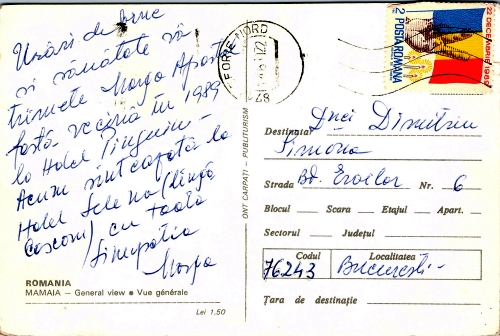 Urări de bine
și sănătate vă
trimete Marga Apostol
fostă vecină în 1989
la Hotel Pinguin -
Acum sunt cazată la
Hotel Selena (lîngă
Cosconi) cu toată
simpatia
Marga
ROMANIA
MAMAIA — General view • Vue générale
Lei 1.50
ONT CARPAȚI - PUBLITURISM
FORIE-NORD
22 DECEMBRIE 1989
2 POSTA ROMANA
Destinatar Dnei Dimitriu
Simona
Strada Bd. Eroilor Nr. 6
Blocul Scara Etajul Apart.
Sectorul Județul
Codul Localitatea
76243 București -
Țara de destinație